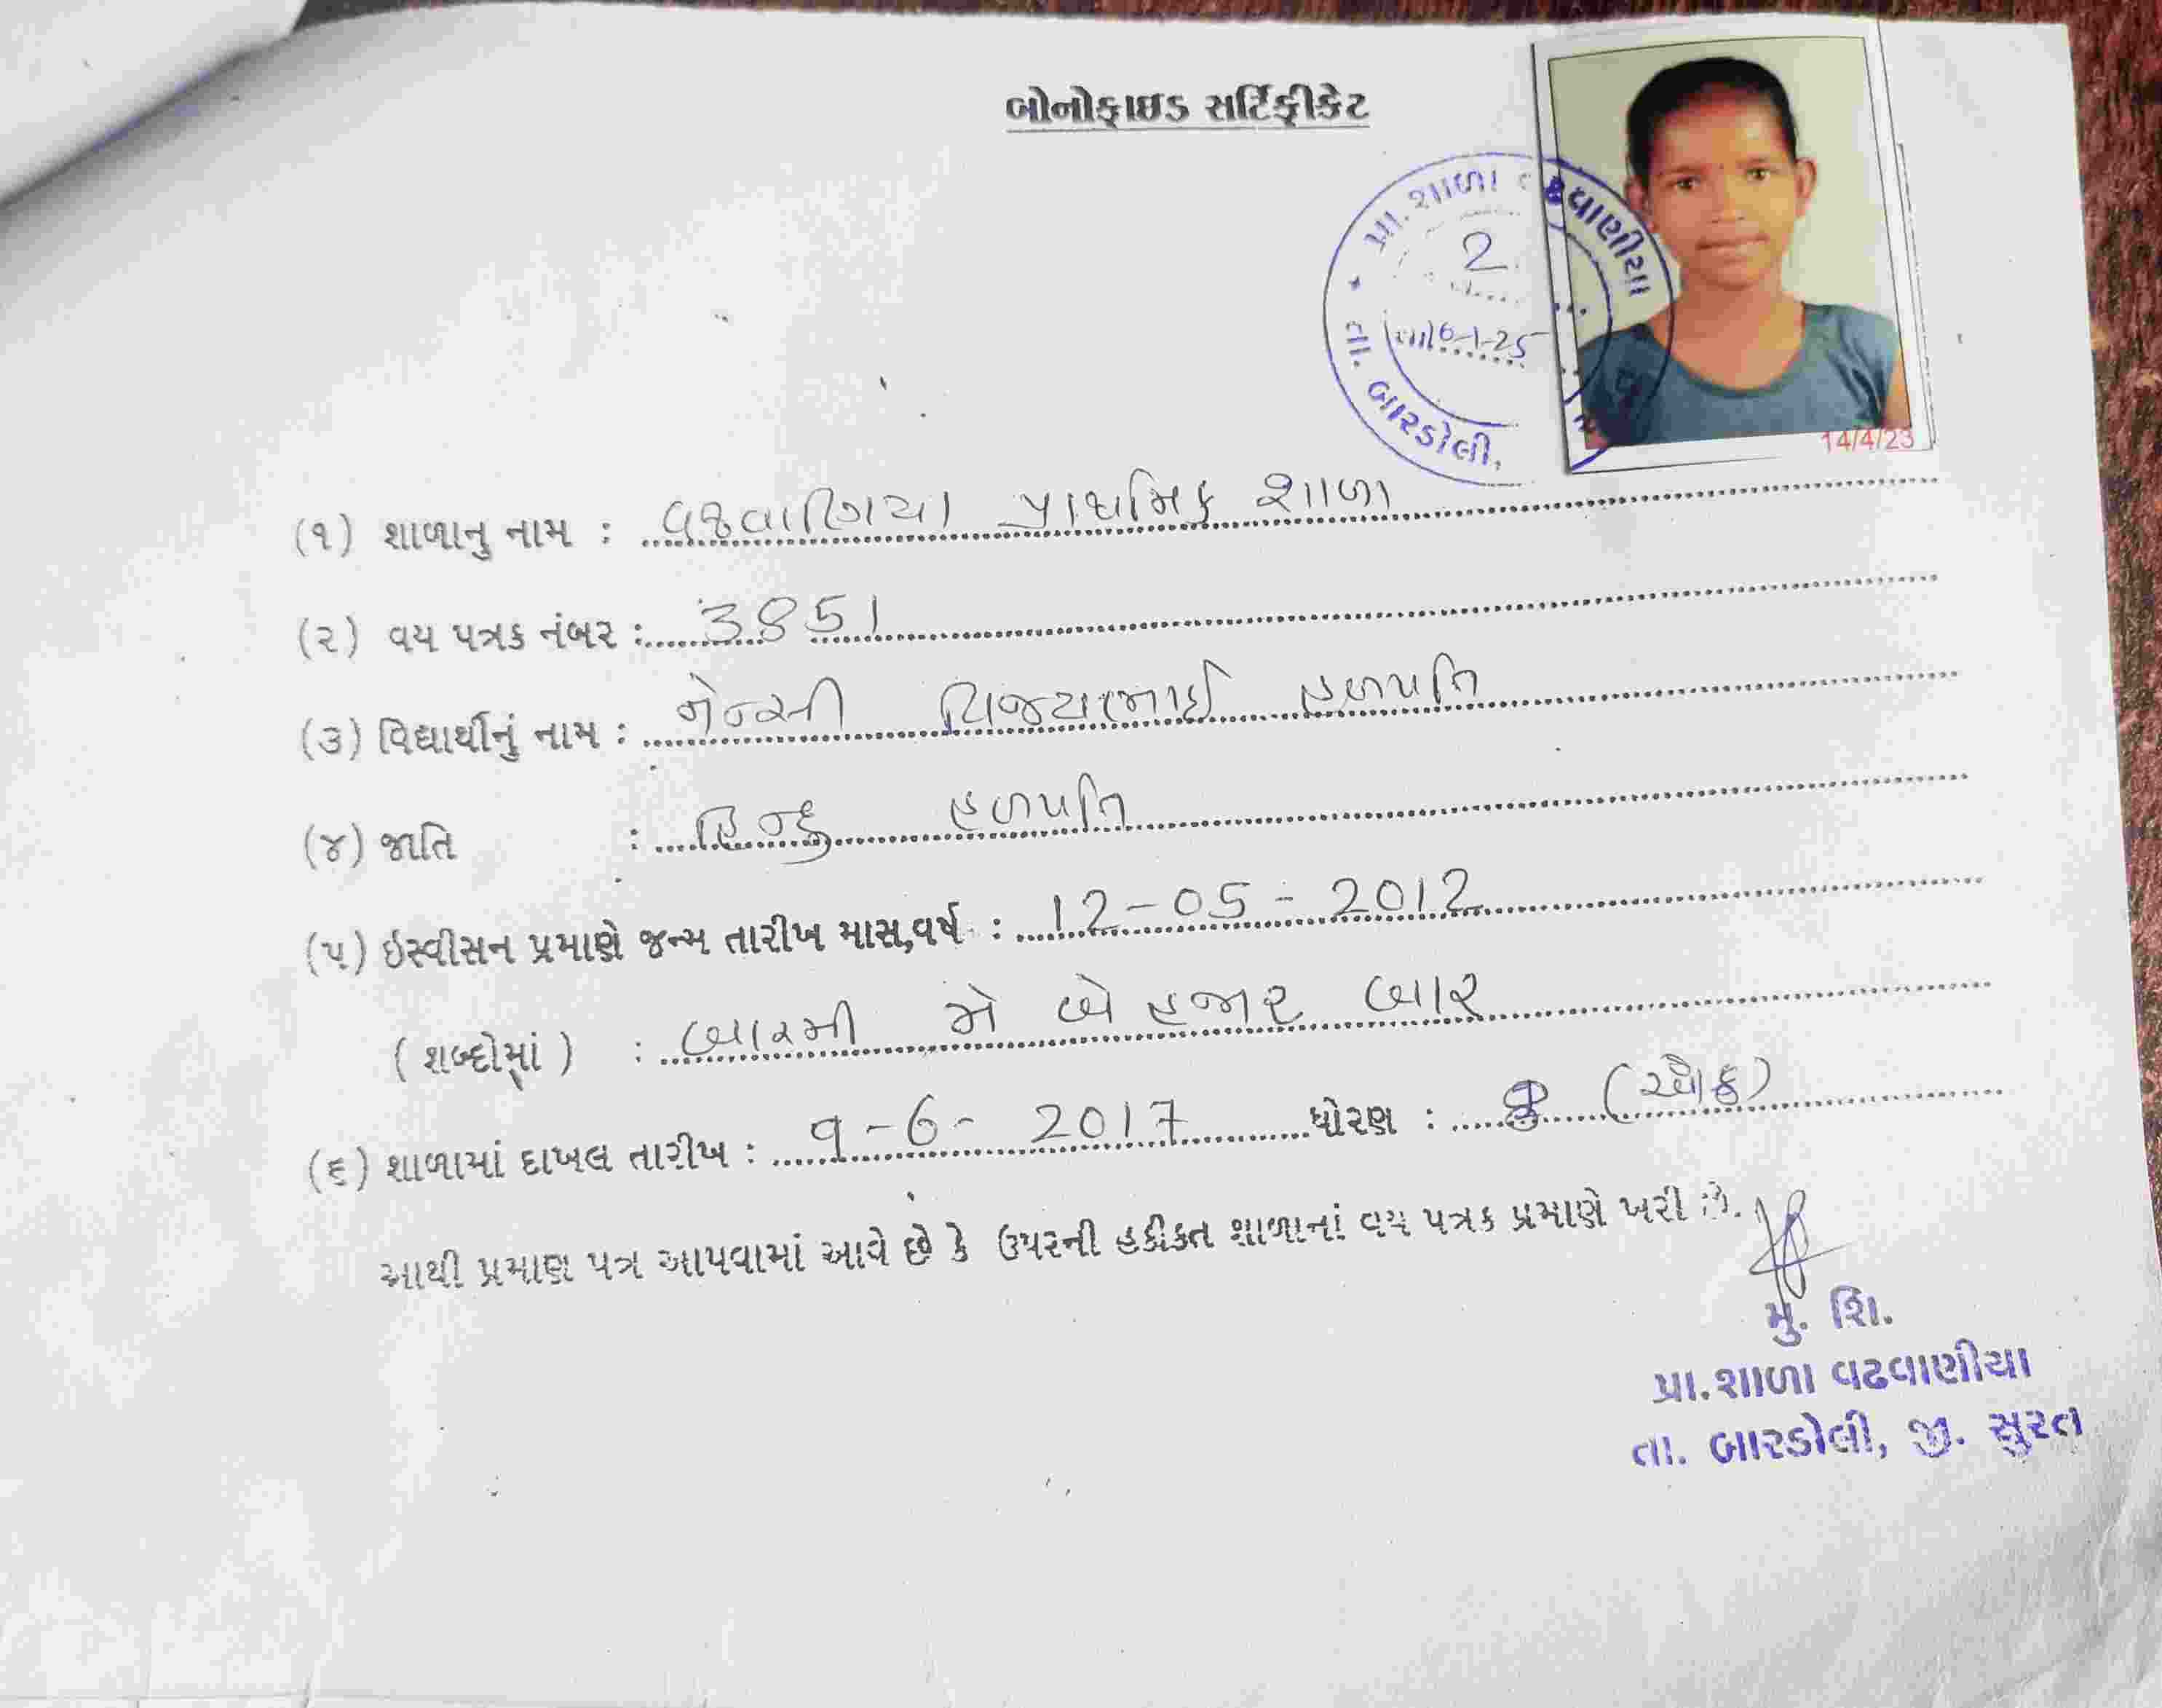 બોનોફાઇડ સર્ટિફીકેટ
પ્રા. શાળા વઢવાણીયા
2
તા 6-1-25
તા. બારડોલી,
14/4/23
(૧) શાળાનુ નામ : વઢવાણિયા પ્રાથમિક શાળા
(૨) વય પત્રક નંબર : 3851
(૩) વિદ્યાર્થીનું નામ : નેન્સી વિજયભાઈ હળપતિ
(૪) જાતિ : હિન્દુ હળપતિ
(૫) ઇસ્વીસન પ્રમાણે જન્મ તારીખ માસ,વર્ષ : 12-05-2012
( શબ્દોમાં ) : બારમી મે બે હજાર બાર
(૬) શાળામાં દાખલ તારીખ : 9-6-2017 ધોરણ : (એક)
આથી પ્રમાણ પત્ર આપવામાં આવે છે કે ઉપરની હકીકત શાળાનાં વય પત્રક પ્રમાણે ખરી છે.
મુ. શિ.
પ્રા.શાળા વઢવાણીયા
તા. બારડોલી, જી. સુરત